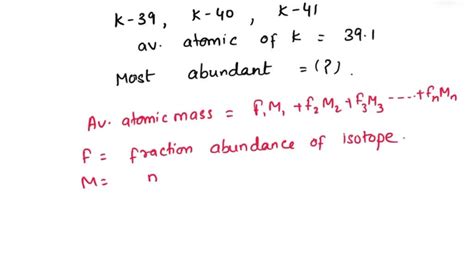 K-39, K-40, K-41
av. atomic of K = 39.1
Most abundant = (?).
Av. atomic mass = f₁M₁ + f₂M₂ + f₃M₃ ---- + fₙMₙ
f = fraction abundance of isotope.
M = n